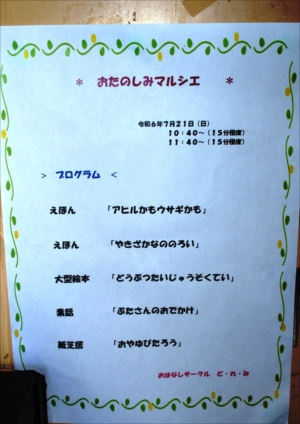 * おたのしみマルシェ *
令和6年7月21日（日）
10：40～（15分程度）
11：40～（15分程度）
> プログラム <
えほん 「アヒルかもウサギかも」
えほん 「やきざかなののろい」
大型絵本 「どうぶつたいじゅうそくてい」
素話 「ぶたさんのおでかけ」
紙芝居 「おやゆびたろう」
おはなしサークル ど・れ・み